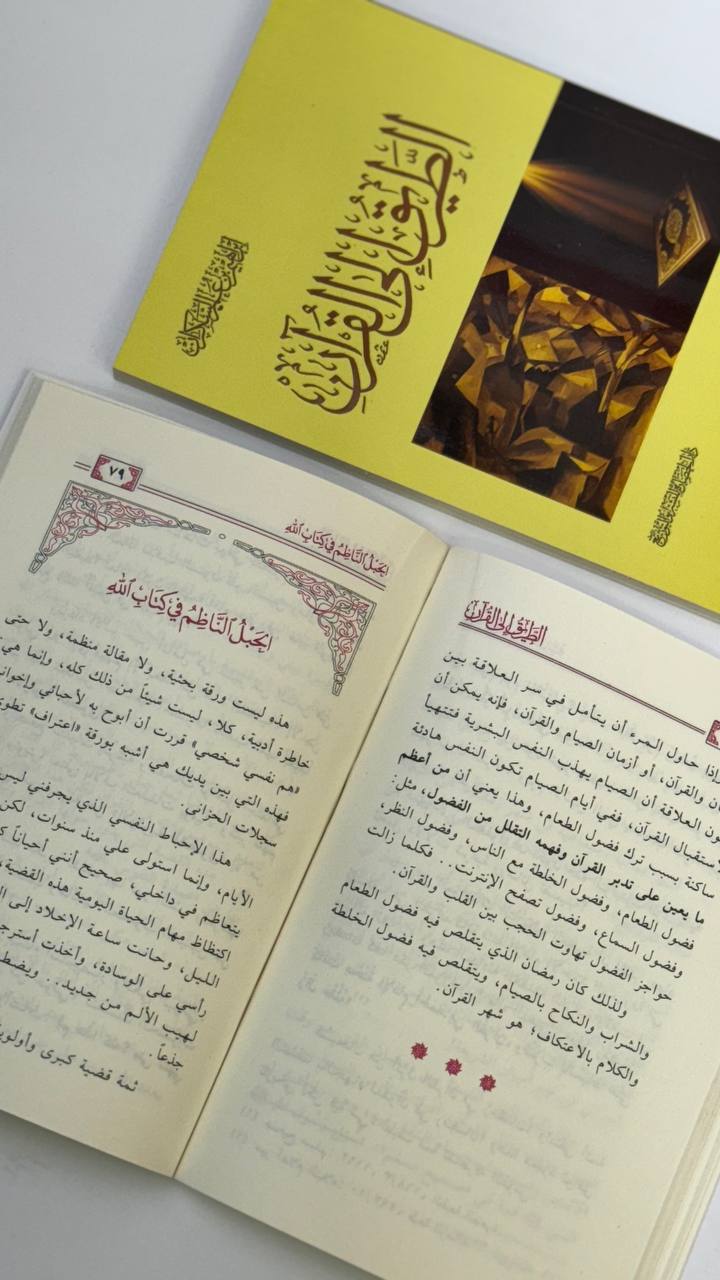 الطَّرِيقُ إِلَى القُرْآنِ
إبراهيم بن عمر السكران
الطَّرِيقُ إِلَى القُرْآنِ
وإذا حاول المرء أن يتأمل في سر العلاقة بين
والقرآن، أو أزمان الصيام والقرآن، فإنه يمكن أن
العلاقة أن الصيام يهذب النفس البشرية فتتهيأ
لاستقبال القرآن، ففي أيام الصيام تكون النفس هادئة
ساكنة بسبب ترك فضول الطعام، وهذا يعني أن من أعظم
ما يعين على تدبر القرآن وفهمه التقلل من الفضول، مثل:
فضول الطعام، وفضول الخلطة مع الناس، وفضول النظر،
وفضول السماع، وفضول تصفح الإنترنت.. فكلما زالت
حواجز الفضول تهاوت الحجب بين القلب والقرآن.
ولذلك كان رمضان الذي يتقلص فيه فضول الطعام
والشراب والنكاح بالصيام، ويتقلص فيه فضول الخلطة
والكلام بالاعتكاف؛ هو شهر القرآن.
الحَبْلُ النَّاظِمُ فِي كِتَابِ اللهِ
٧٩
الحَبْلُ النَّاظِمُ فِي كِتَابِ اللهِ
هذه ليست ورقة بحثية، ولا مقالة منظمة، ولا حتى
خاطرة أدبية، كلا، ليست شيئاً من ذلك كله، وإنما هي
«هم نفسي شخصي» قررت أن أبوح به لأحبائي
فهذه التي بين يديك هي أشبه بورقة «اعتراف»
سجلات الحزانى.
هذا الإحباط النفسي الذي يجرفني ليس
الأيام، وإنما استولى علي منذ سنوات، لكن
يتعاظم في داخلي، صحيح أنني أحياناً
اكتظاظ مهام الحياة اليومية هذه القضية،
الليل، وحانت ساعة الإخلاد إلى
رأسي على الوسادة، وأخذت
لهيب الألم من جديد..
جذعاً.
ثمة قضية كبرى